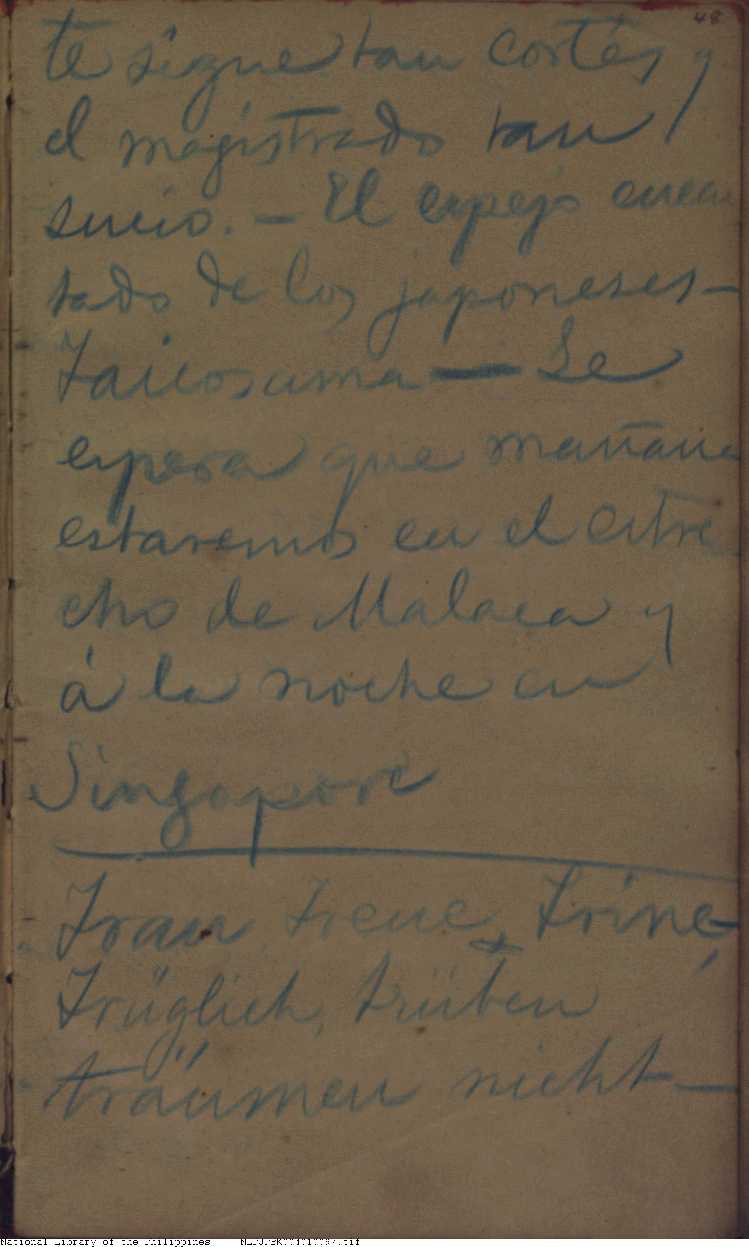 48
te sigue tan cortés y
el magistrado tan
sucio. — El espejo encan
tado de los japoneses —
Taicosama — Se
espera que mañana
estaremos en el estre
cho de Malaca y
á la noche en
Singapore
Trau, Treue, Trine,
Trüglich, trüben
träumen nicht —
National Library of the Philippines